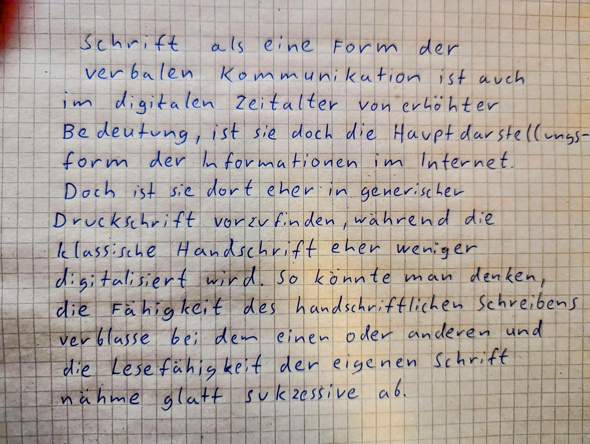 Schrift als eine Form der
verbalen Kommunikation ist auch
im digitalen Zeitalter von erhöhter
Bedeutung, ist sie doch die Hauptdarstellungs-
form der Informationen im Internet.
Doch ist sie dort eher in generischer
Druckschrift vorzufinden, während die
klassische Handschrift eher weniger
digitalisiert wird. So könnte man denken,
die Fähigkeit des handschriftlichen Schreibens
verblasse bei dem einen oder anderen und
die Lesefähigkeit der eigenen Schrift
nähme glatt sukzessive ab.